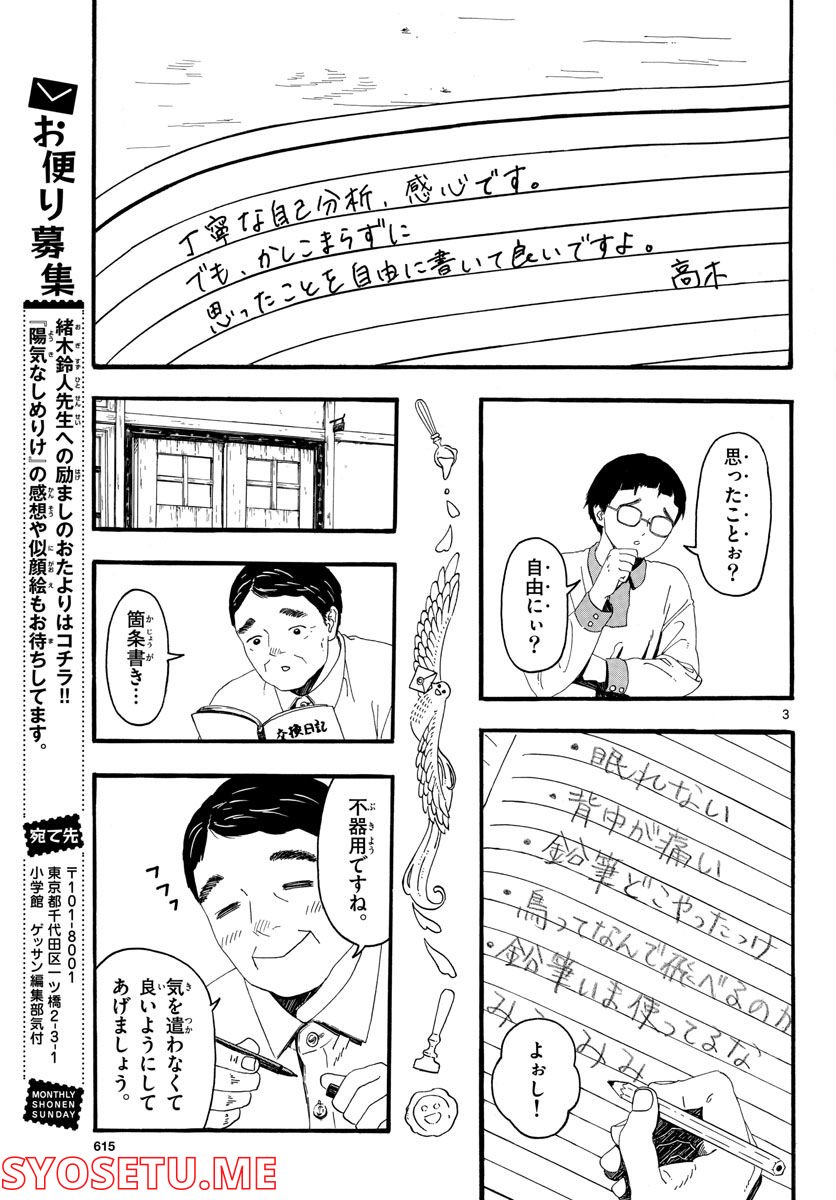 丁寧な自己分析、感心です。
でも、かしこまらずに
思ったことを自由に書いて良いですよ。
高木
思ったことぉ？
自由にぃ？
3
・眠れない
・背中が痛い
・鉛筆どこやったっけ
・鳥ってなんで飛べるのか
・鉛筆いま使ってるな
よぉし！
箇条書き…
かじょうが
交換日記
不器用ですね。
ぶきよう
気を遣わなくて
良いようにして
あげましょう。
き つか
い
615
お便り募集
緒木鈴人先生への励ましのおたよりはコチラ!!
おぎすずひとせんせい はげ
『陽気なしめりけ』の感想や似顔絵もお待ちしてます。
ようき かんそう にがおえ ま
宛て先
〒101-8001
東京都千代田区一ツ橋2-3-1
小学館 ゲッサン編集部気付
MONTHLY
SHONEN
SUNDAY
SYOSETU.ME